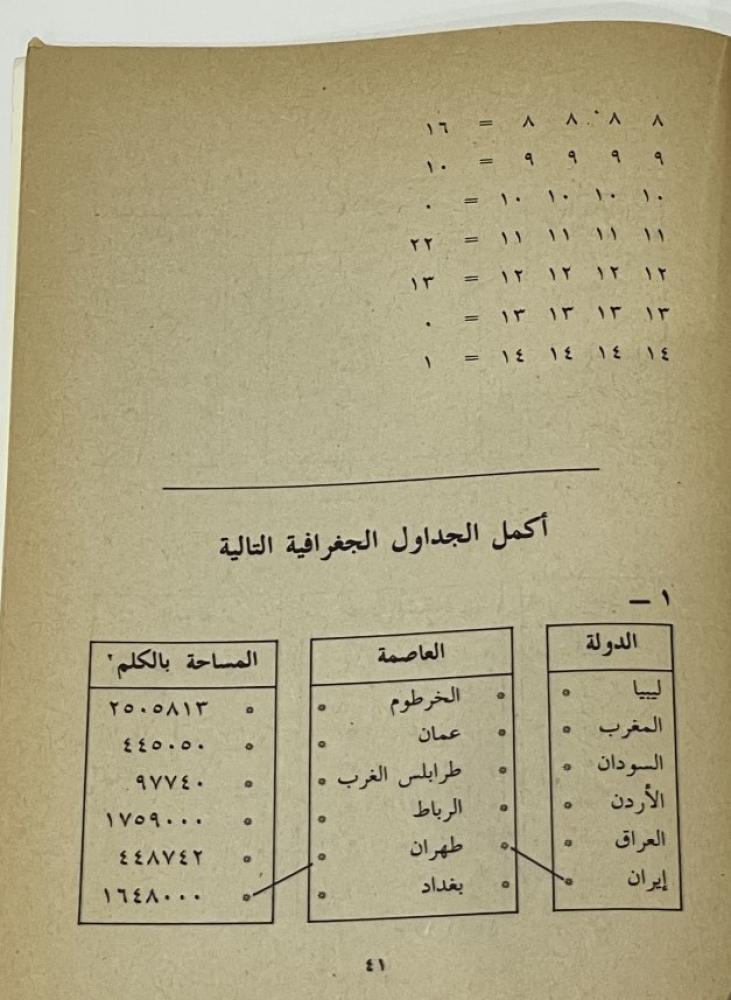 ٨ ٨ ٨ ٨ = ١٦
٩ ٩ ٩ ٩ = ١٠
١٠ ١٠ ١٠ ١٠ = ٠
١١ ١١ ١١ ١١ = ٢٢
١٢ ١٢ ١٢ ١٢ = ١٣
١٣ ١٣ ١٣ ١٣ = ٠
١٤ ١٤ ١٤ ١٤ = ١
أكمل الجداول الجغرافية التالية
١ —
الدولة العاصمة المساحة بالكلم٢
ليبيا الخرطوم ٢٥٠٥٨١٣
المغرب عمان ٤٤٥٠٥٠
السودان طرابلس الغرب ٩٧٧٤٠
الأردن الرباط ١٧٥٩٠٠٠
العراق طهران ٤٤٨٧٤٢
إيران بغداد ١٦٤٨٠٠٠
٤١